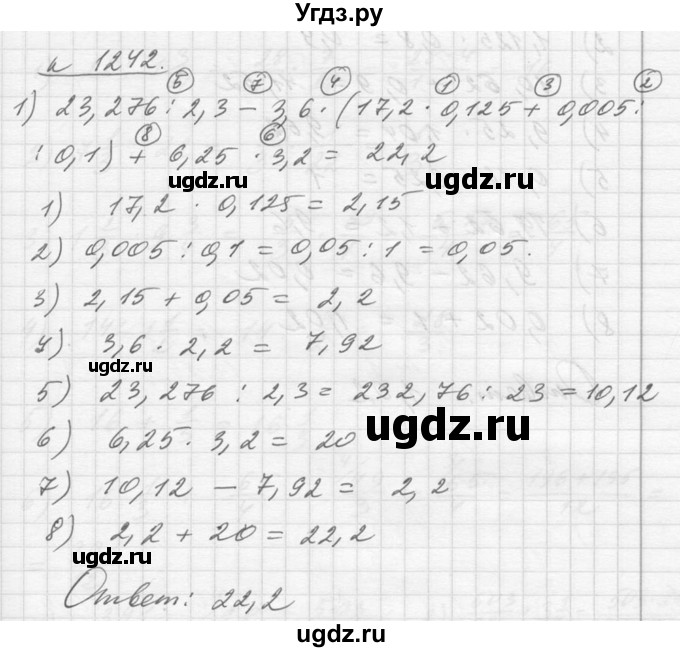 Угдз.ру
н 1242.
⑤ ⑦ ④ ① ③ ②
1) 23,276 : 2,3 - 3,6 · (17,2 · 0,125 + 0,005 :
⑧ ⑥
: 0,1) + 6,25 · 3,2 = 22,2
ugdz.ru ugdz.ru
1) 17,2 · 0,125 = 2,15
2) 0,005 : 0,1 = 0,05 : 1 = 0,05.
3) 2,15 + 0,05 = 2,2
4) 3,6 · 2,2 = 7,92
ugdz.ru
5) 23,276 : 2,3 = 232,76 : 23 = 10,12
6) 6,25 · 3,2 = 20
ugdz.ru
7) 10,12 - 7,92 = 2,2
8) 2,2 + 20 = 22,2
ugdz.ru
Ответ: 22,2
ugdz.ru